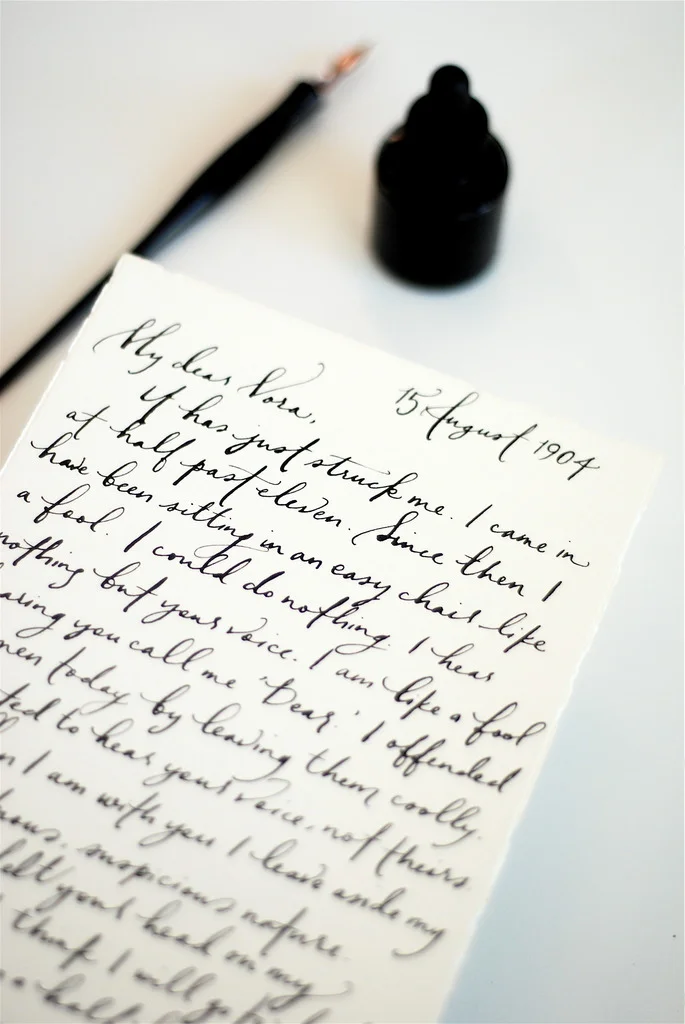 My dear Nora, 15 August 1904
It has just struck me. I came in
at half past eleven. Since then I
have been sitting in an easy chair like
a fool. I could do nothing. I hear
nothing but your voice. I am like a fool
aring you call me 'Dear.' I offended
men today by leaving them coolly.
ted to hear your voice, not theirs.
I am with you I leave aside my
suspicious nature.
elt your head on my
think I will go
a half-